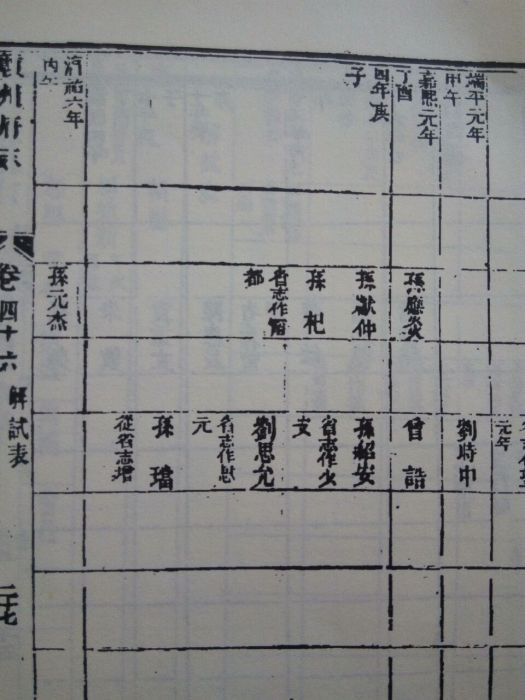 端平元年
甲午
嘉熙元年
丁酉
四年庚
子
淳祐六年
丙午
孫應炎
孫獻仲
孫杞
省志作
都
孫元杰
元年
劉時中
曾誥
孫紹安
省志作少
支
劉思允
省志作思
元
孫璫
從省志增
卷四十六
解試表